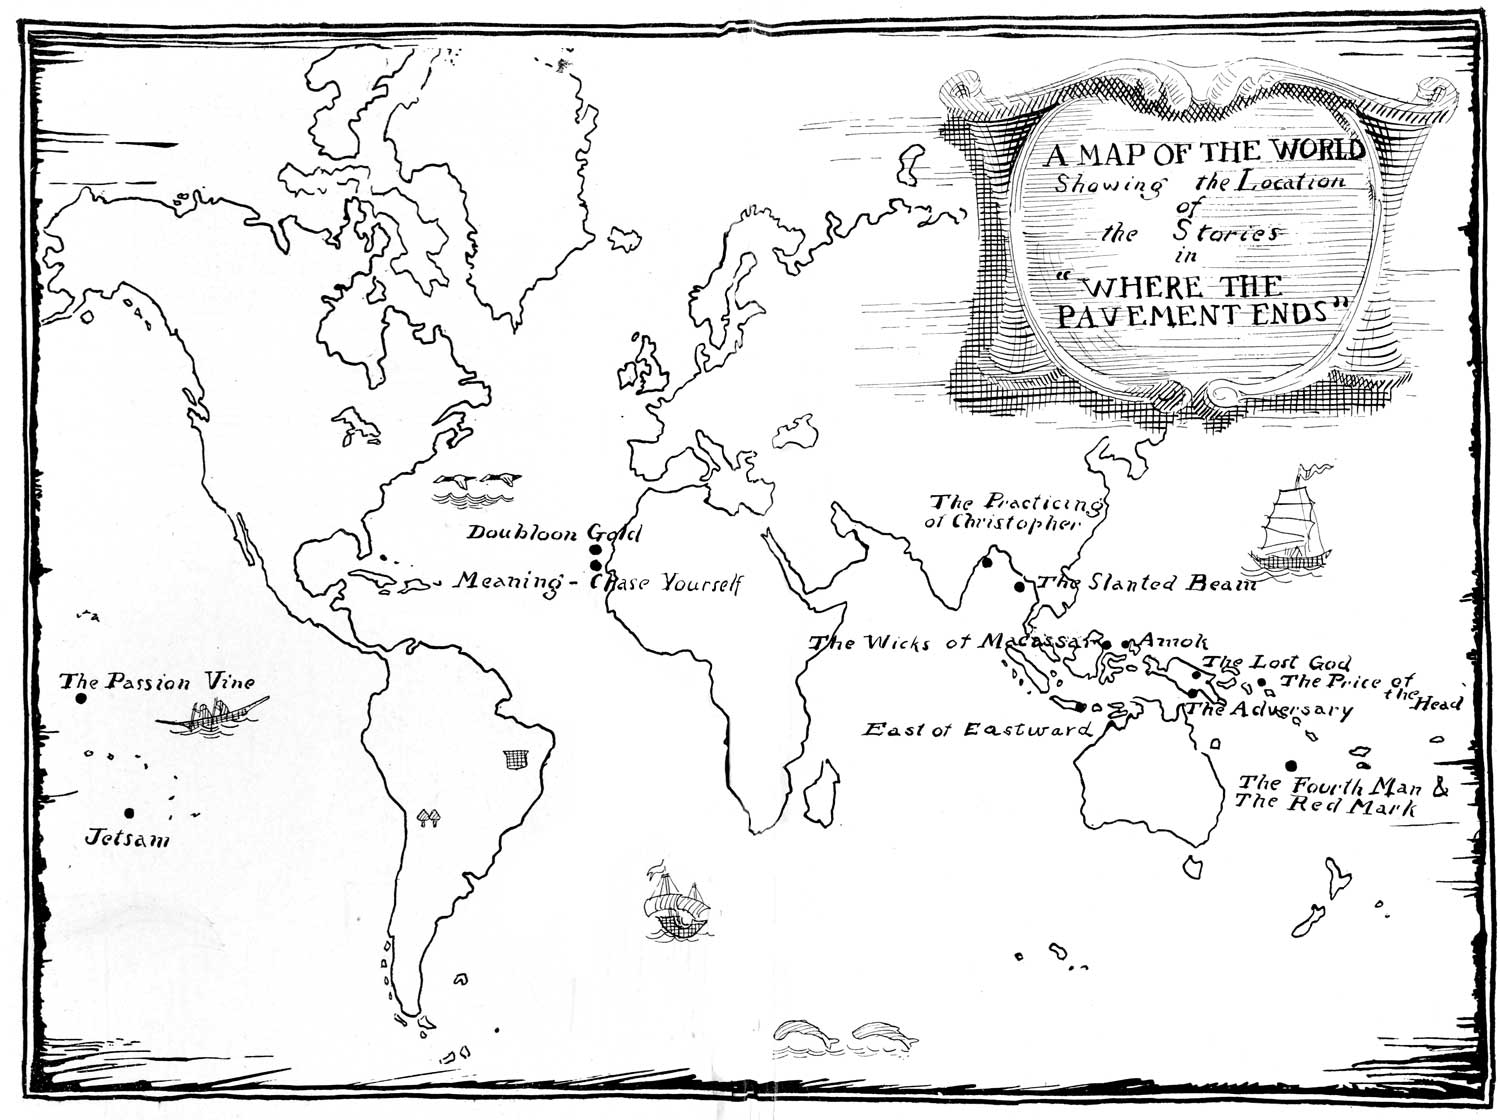 A MAP OF THE WORLD
Showing the Location
of
the Stories
in
"WHERE THE
PAVEMENT ENDS"
The Practicing
of Christopher
Doubloon Gold
Meaning - Chase Yourself
The Slanted Beam
The Wicks of Macassar
Amok
The Lost God
The Price of
the Head
The Passion Vine
The Adversary
East of Eastward
The Fourth Man &
The Red Mark
Jetsam